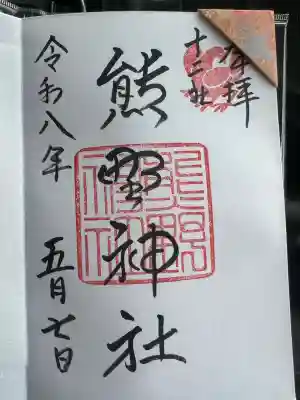 奉拝
十二社
熊野神社
令和八年
五月七日